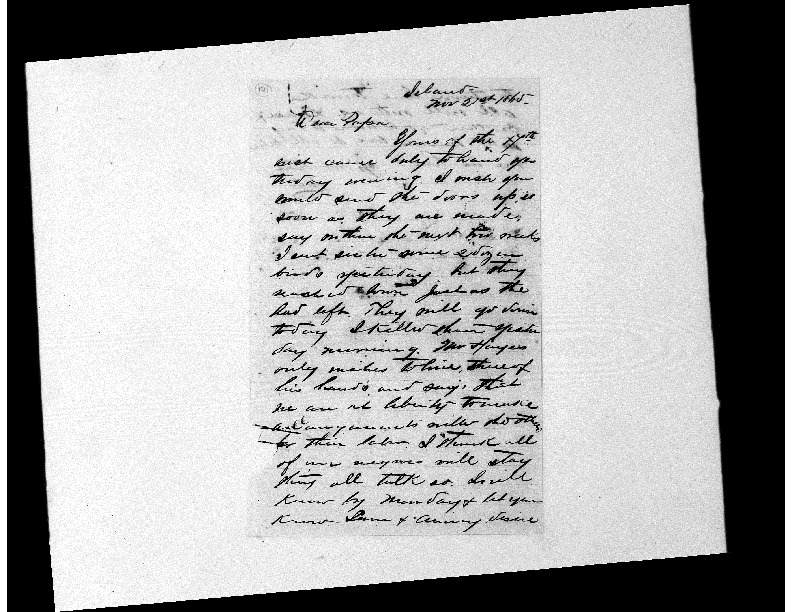 Island
Nov 21st 1865
Dear Papa
Yours of the 17th
inst came duly to hand yes
terday evening I wish you
could send the doors up as
soon as they are made,
say within the next two weeks
I sent sister some 2 dozen
birds yesterday but they
reached town just as the
had left They will go down
today I killed them yester
day morning. Mr Hayes
only wishes to hire three of
his hands and says that
we are at liberty to make
arrangements with the others
for their labor I think all
of our negroes will stay
They all talk so. I will
know by Monday & let you
know & desire